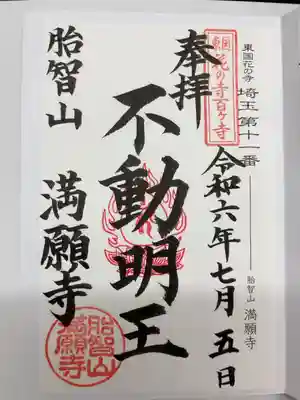 東国花の寺 埼玉第十一番
胎智山 満願寺
東国花の寺百ヶ寺
奉拝
令和六年七月五日
不動明王
胎智山
満願寺
胎智山
満願寺